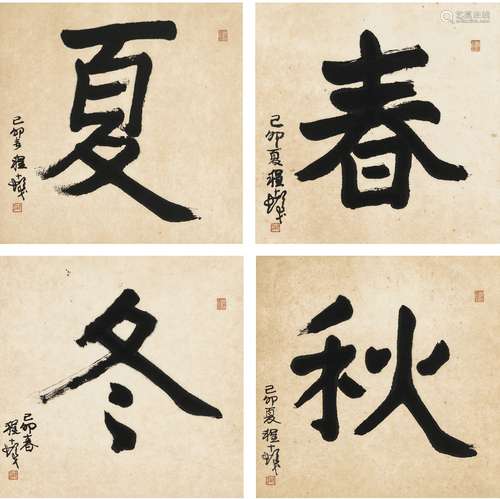 春
己卯夏程十髮
夏
己卯
程十髮
秋
己卯夏程十髮
冬
己卯春
程十髮